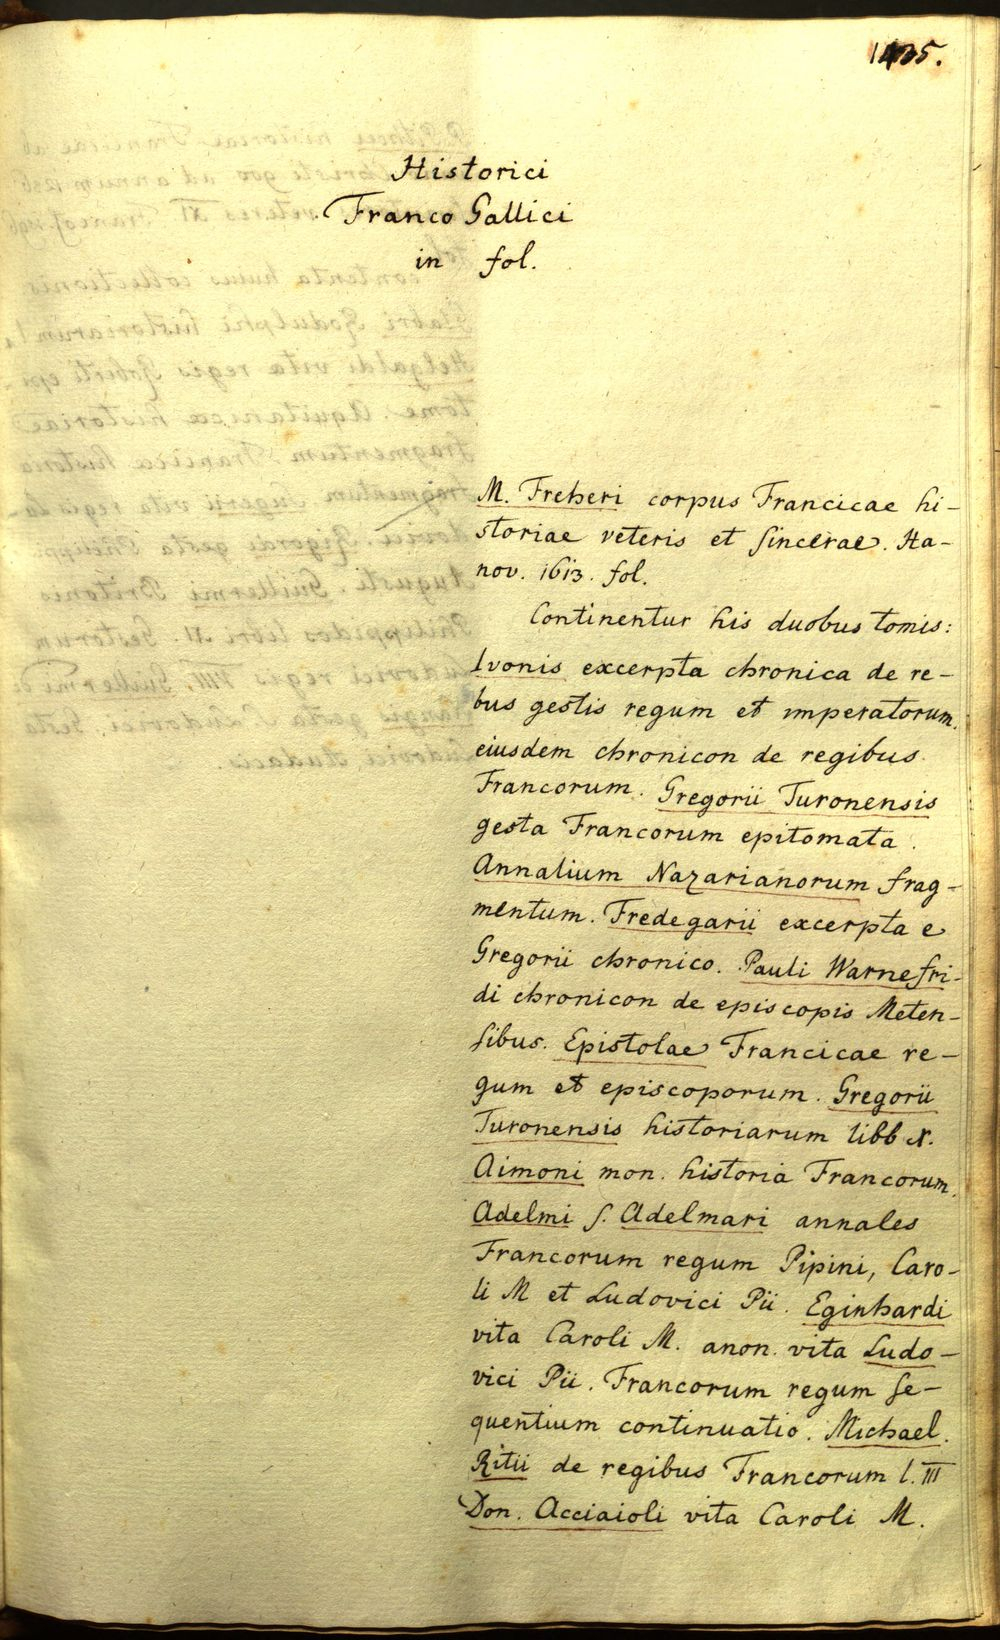 Historici
Franco Gallici
in fol.
M. Freheri corpus Francicae hi-
storiae veteris et sincerae. Ha-
nov. 1613. fol.
Continentur his duobus tomis:
Ivonis excerpta chronica de re-
bus gestis regum et imperatorum.
eiusdem chronicon de regibus
Francorum. Gregorii Turonensis
gesta Francorum epitomata.
Annalium Nazarianorum frag-
mentum. Fredegarii excerpta e
Gregorii chronico. Pauli Warnefri-
di chronicon de episcopis Meten-
sibus. Epistolae Francicae re-
gum et episcoporum. Gregorii
Turonensis historiarum libb X.
Aimoni mon. historia Francorum.
Adelmi s. Adelmari annales
Francorum regum Pipini, Caro-
li M et Ludovici Pii. Eginhardi
vita Caroli M. anon. vita Ludo-
vici Pii. Francorum regum se-
quentium continuatio. Michael.
Ritii de regibus Francorum l. III
Don. Acciaioli vita Caroli M.